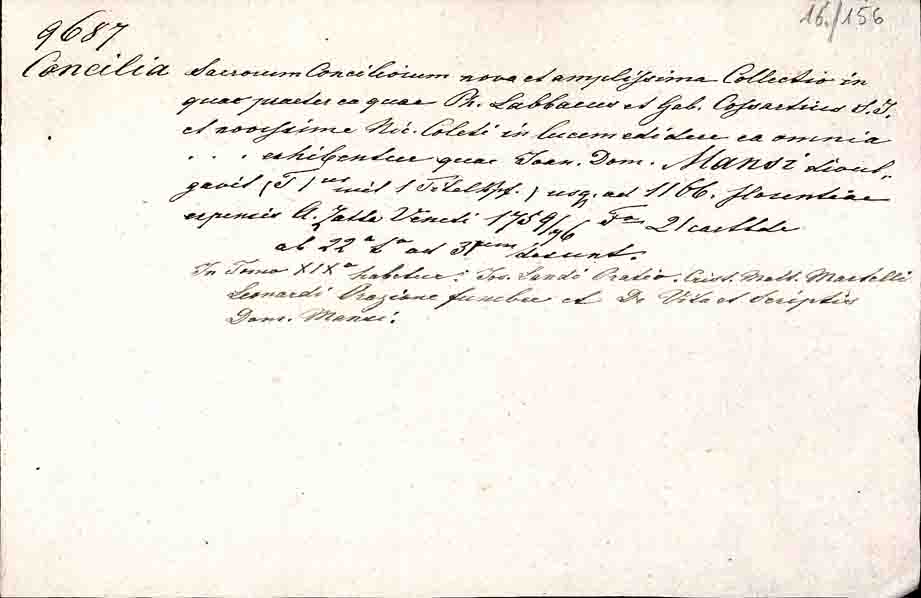 16./156
9687
Concilia Sacrorum Conciliorum nova et amplissima Collectio in
quae praeter ea quae Ph. Labbaeus et Gab. Cossartius S.J.
et novissime Nic. Coleti in lucem edidere ea omnia
. . . exhibentur quae Joan. Dom. Mansi divul-
gavit (T) mit 1 Titelkpf.) usq. ad 1166. florentiae
expensis A. Zatta Veneti 1759/96 Fo 21
ab 22a ad 31um desunt.
In Tomo XIXo habetur: Jos. Sandi Oratio. Crist. Matt. Martelli
Leonardi Orazione funebre et De Vita et Scriptis
Dom. Mansi.